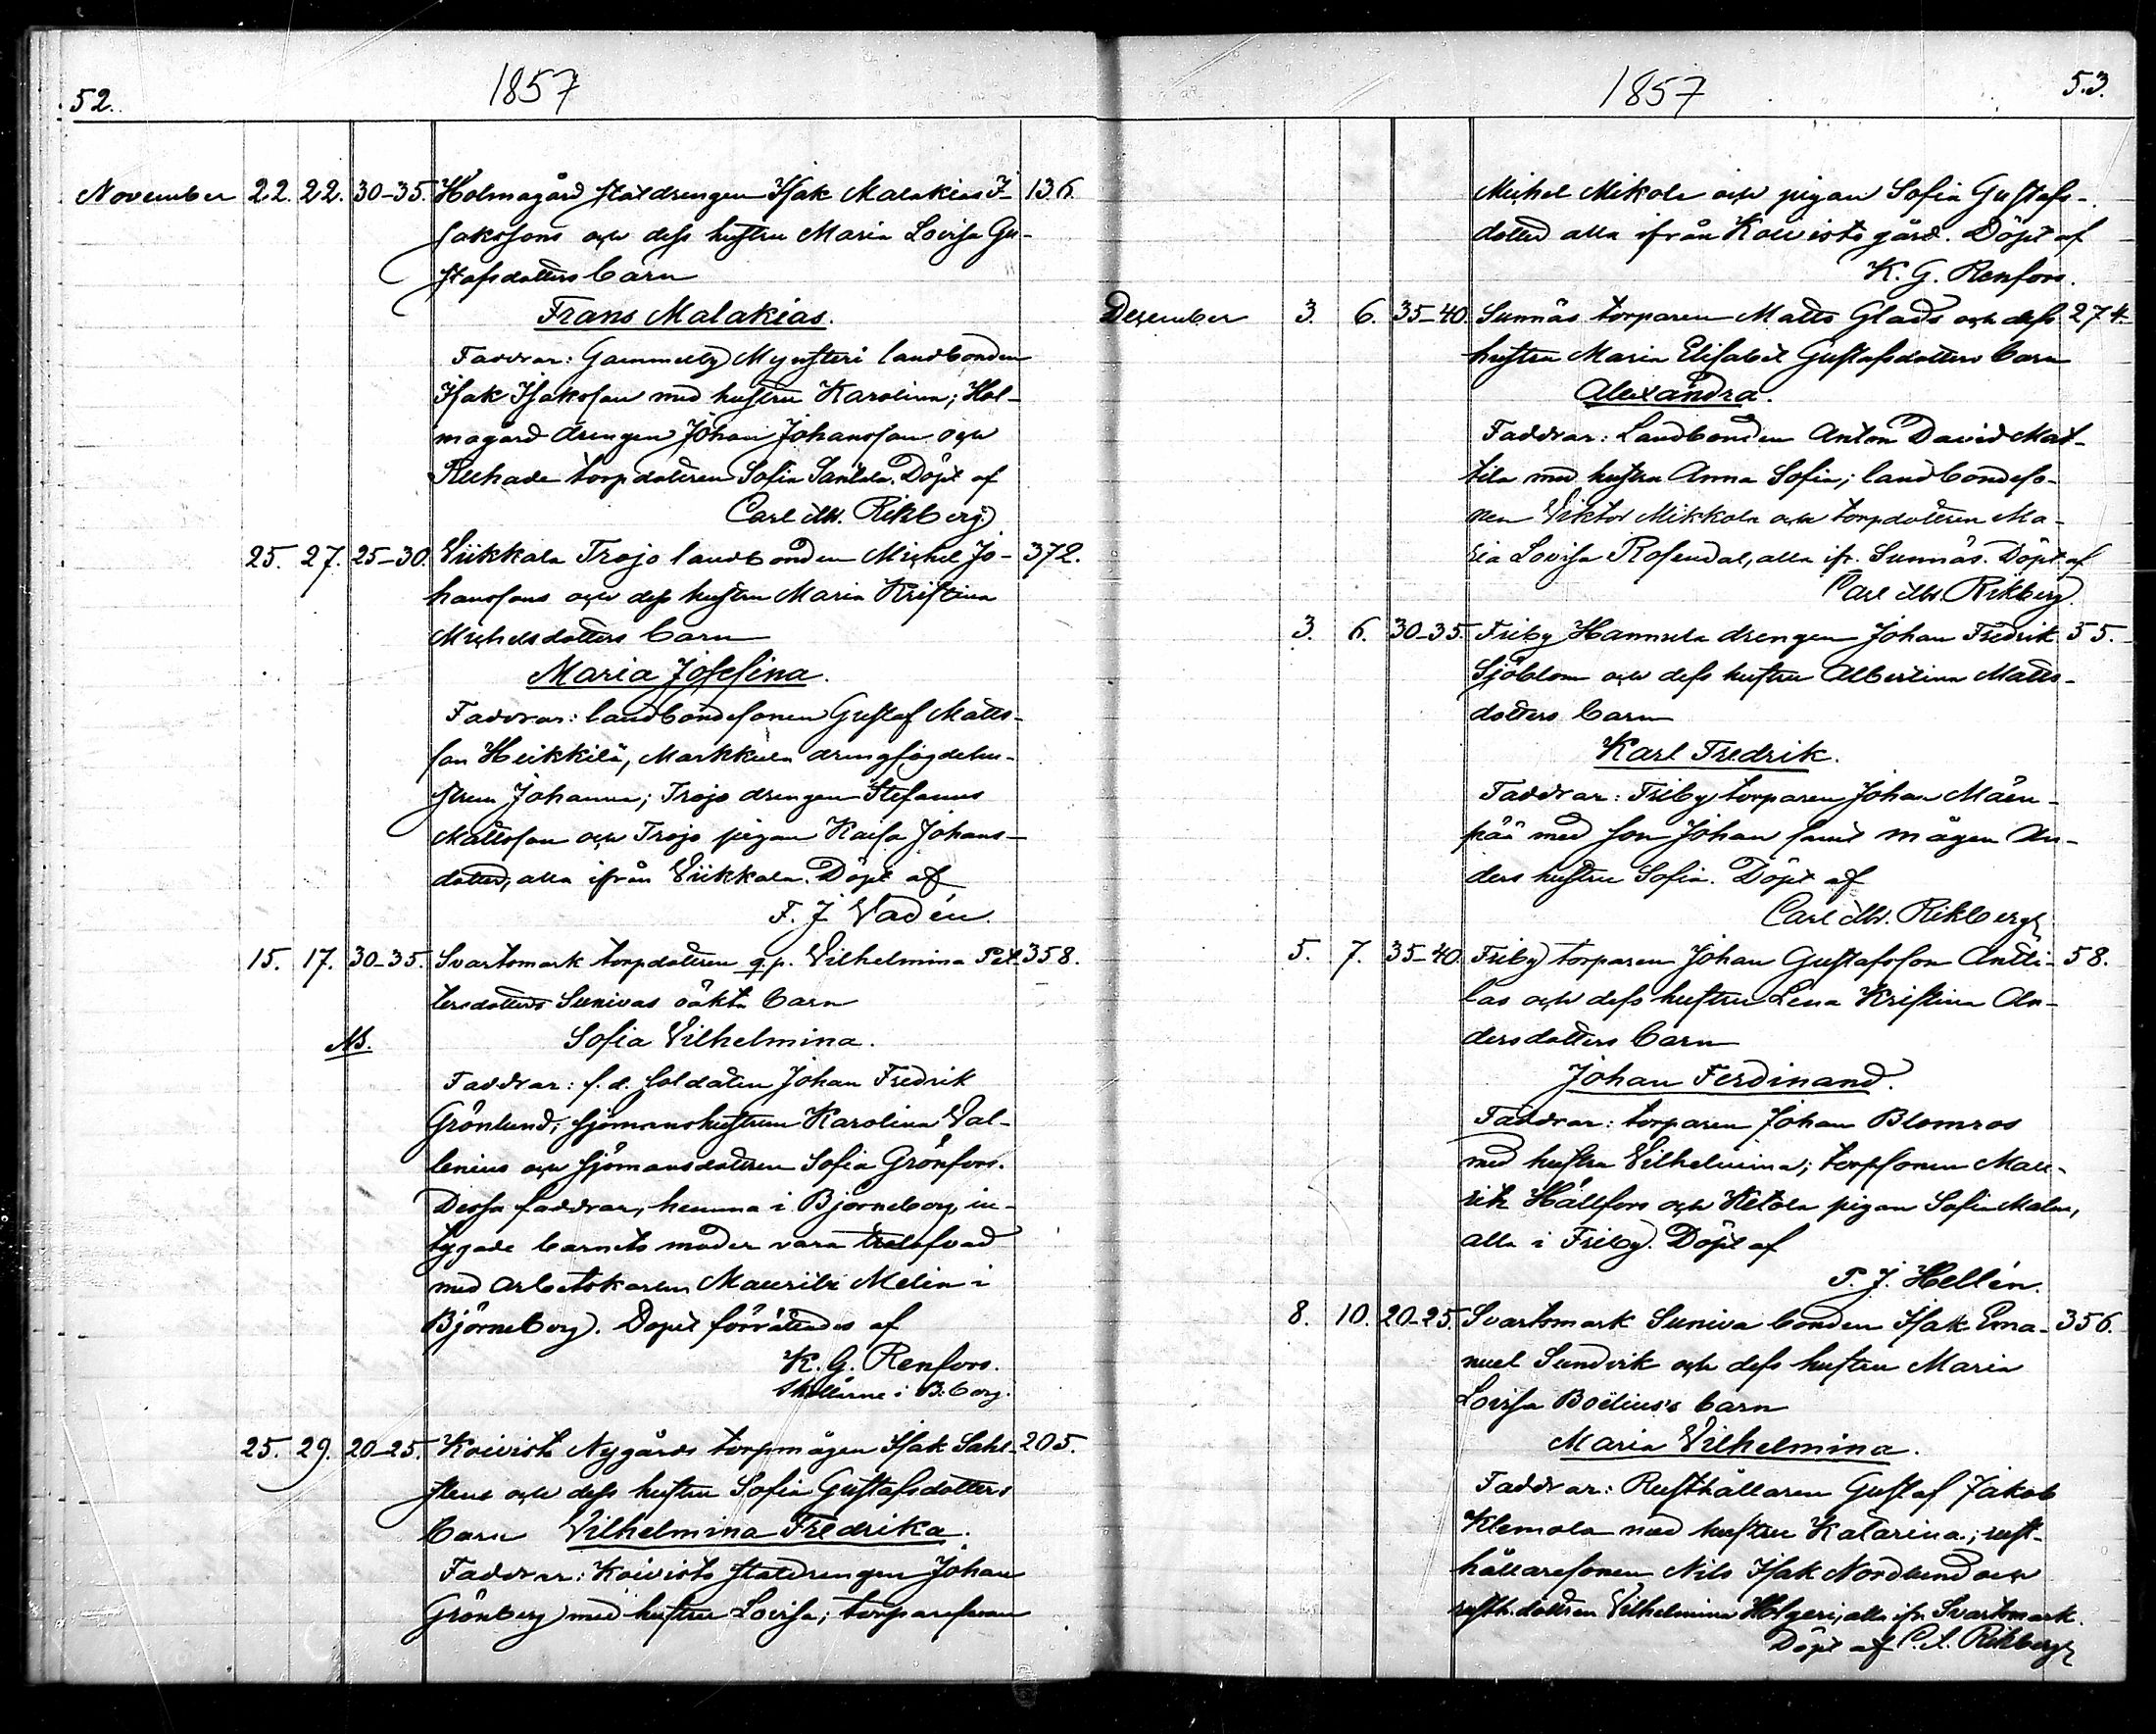 52.
1857
November 22. 22. 30-35. Holmagård statdrengen Isak Malakias I- 136.
sakssons och dess hustru Maria Lovisa Gu-
stafsdotters barn
Frans Malakias.
Faddrar: Gammelby Mynsteri landbonden
Isak Isaksson med hustru Karolina; Hol-
magård drengen Johan Johansson och
torpdottren Sofia Santala. Döpt af
Carl M. Rikberg.
25. 27. 25-30. Viikkala Trojo landbonden Michel Jo- 372.
hanssons och dess hustru Maria Kristina
Michelsdotters barn
Maria Josefina.
Faddrar: landbondesonen Gustaf Matts-
son Heikkilä, Markkula drengfogdehu-
strun Johanna; Trojo drengen Stefanus
Mattsson och Trojo pigan Kaisa Johans-
dotter, alla ifrån Viikkala. Döpt af
F. J. Vadén.
15. 17. 30-35. Svartsmark torpdottren q.p. Vilhelmina Pet- 358.
tersdotters Sunivas oäkta barn
NB. Sofia Vilhelmina.
Faddrar: f.d. soldaten Johan Fredrik
Grönlund; sjömanshustrun Karolina Val-
lenius och sjömansdottren Sofia Grönfors.
Dessa faddrar, hemma i Björneborg, in-
tygade barnets moder vara trolofvad
med arbetskarlen Maurits Melin i
Björneborg. Dopet förrättades af
K. G. Renfors.
i B:borg.
25. 29. 20-25. Koivisto Nygårds torpmågen Isak Sahl- 205.
stens och dess hustru Sofia Gustafsdotters
barn Vilhelmina Fredrika.
Faddrar: Koivisto statdrengen Johan
Grönberg med hustru Lovisa; torparesonen
1857
53.
Michel Mikola och pigan Sofia Gustafs-
dotter alla ifrån Koivisto gård. Döpt af
K. G. Renfors.
December 3. 6. 35-40. Sunnäs torparen Matts Glads och dess 274.
hustru Maria Elisabet Gustafsdotters barn
Alexandra.
Faddrar: Landbonden Anton David Mat-
tila med hustru Anna Sofia; landbondeso-
nen Viktor Mikkola och torpdottren Ma-
ria Lovisa Rosendal, alla ifr. Sunnäs. Döpt af
Carl M. Rikberg.
3. 6. 30-35. Friby Hannula drengen Johan Fredrik 55.
Sjöblom och dess hustru Albertina Matts-
dotters barn
Karl Fredrik.
Faddrar: Friby torparen Johan Mäen-
pää med son Johan samt mågen An-
ders hustru Sofia. Döpt af
Carl M. Rikberg
5. 7. 35-40. Friby torparen Johan Gustafsson Antti- 58.
las och dess hustru Lena Kristina An-
dersdotters barn
Johan Ferdinand.
Faddrar: torparen Johan Blomros
med hustru Vilhelmina; torpsonen Mau-
rits Hällfors och Ketola pigan Sofia Malm,
alla i Friby. Döpt af
P. J. Hellén.
8. 10. 20-25. Svartsmark Suniva bonden Isak Ema- 356.
nuel Sundvik och dess hustru Maria
Lovisa Boëlius's barn
Maria Vilhelmina.
Faddrar: Rusthållaren Gustaf Jakob
Klemola med hustru Katarina; rust-
hållaresonen Nils Isak Nordlund och
rusth.dottren Vilhelmina Holgeri, alla ifr. Svartsmark.
Döpt af C. M. Rikberg